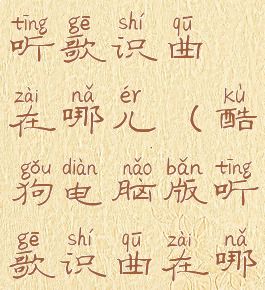 tīng gē shí qū
听歌识曲
zài nǎ ér kù
在哪儿（酷
gǒu diàn nǎo bǎn tīng
狗电脑版听
gē shí qū zài nǎ
歌识曲在哪